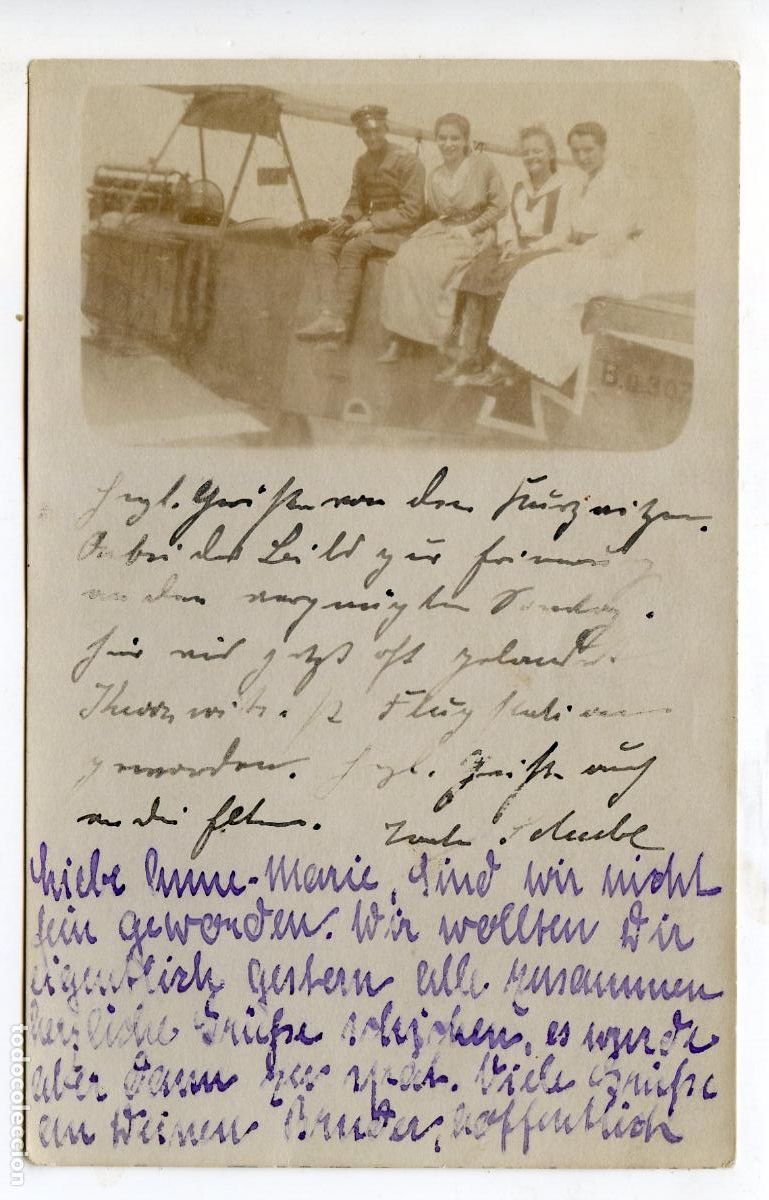 B.Q.307
Hrzl. Grüße von den
Anbei das Bild zur Erinnerung
an den vergnügten Sonntag.
hier wird jetzt oft gelandet.
ist Flugstation
geworden. Hrzl. Grüße auch
an die Eltern.
Liebe Anne-Marie, Sind wir nicht
fein geworden. Wir wollten Dir
eigentlich gestern alle zusammen
herzliche Grüße schicken, es wurde
aber dann zu spät. Viele Grüße
an Deinen Bruder, hoffentlich
todocoleccion